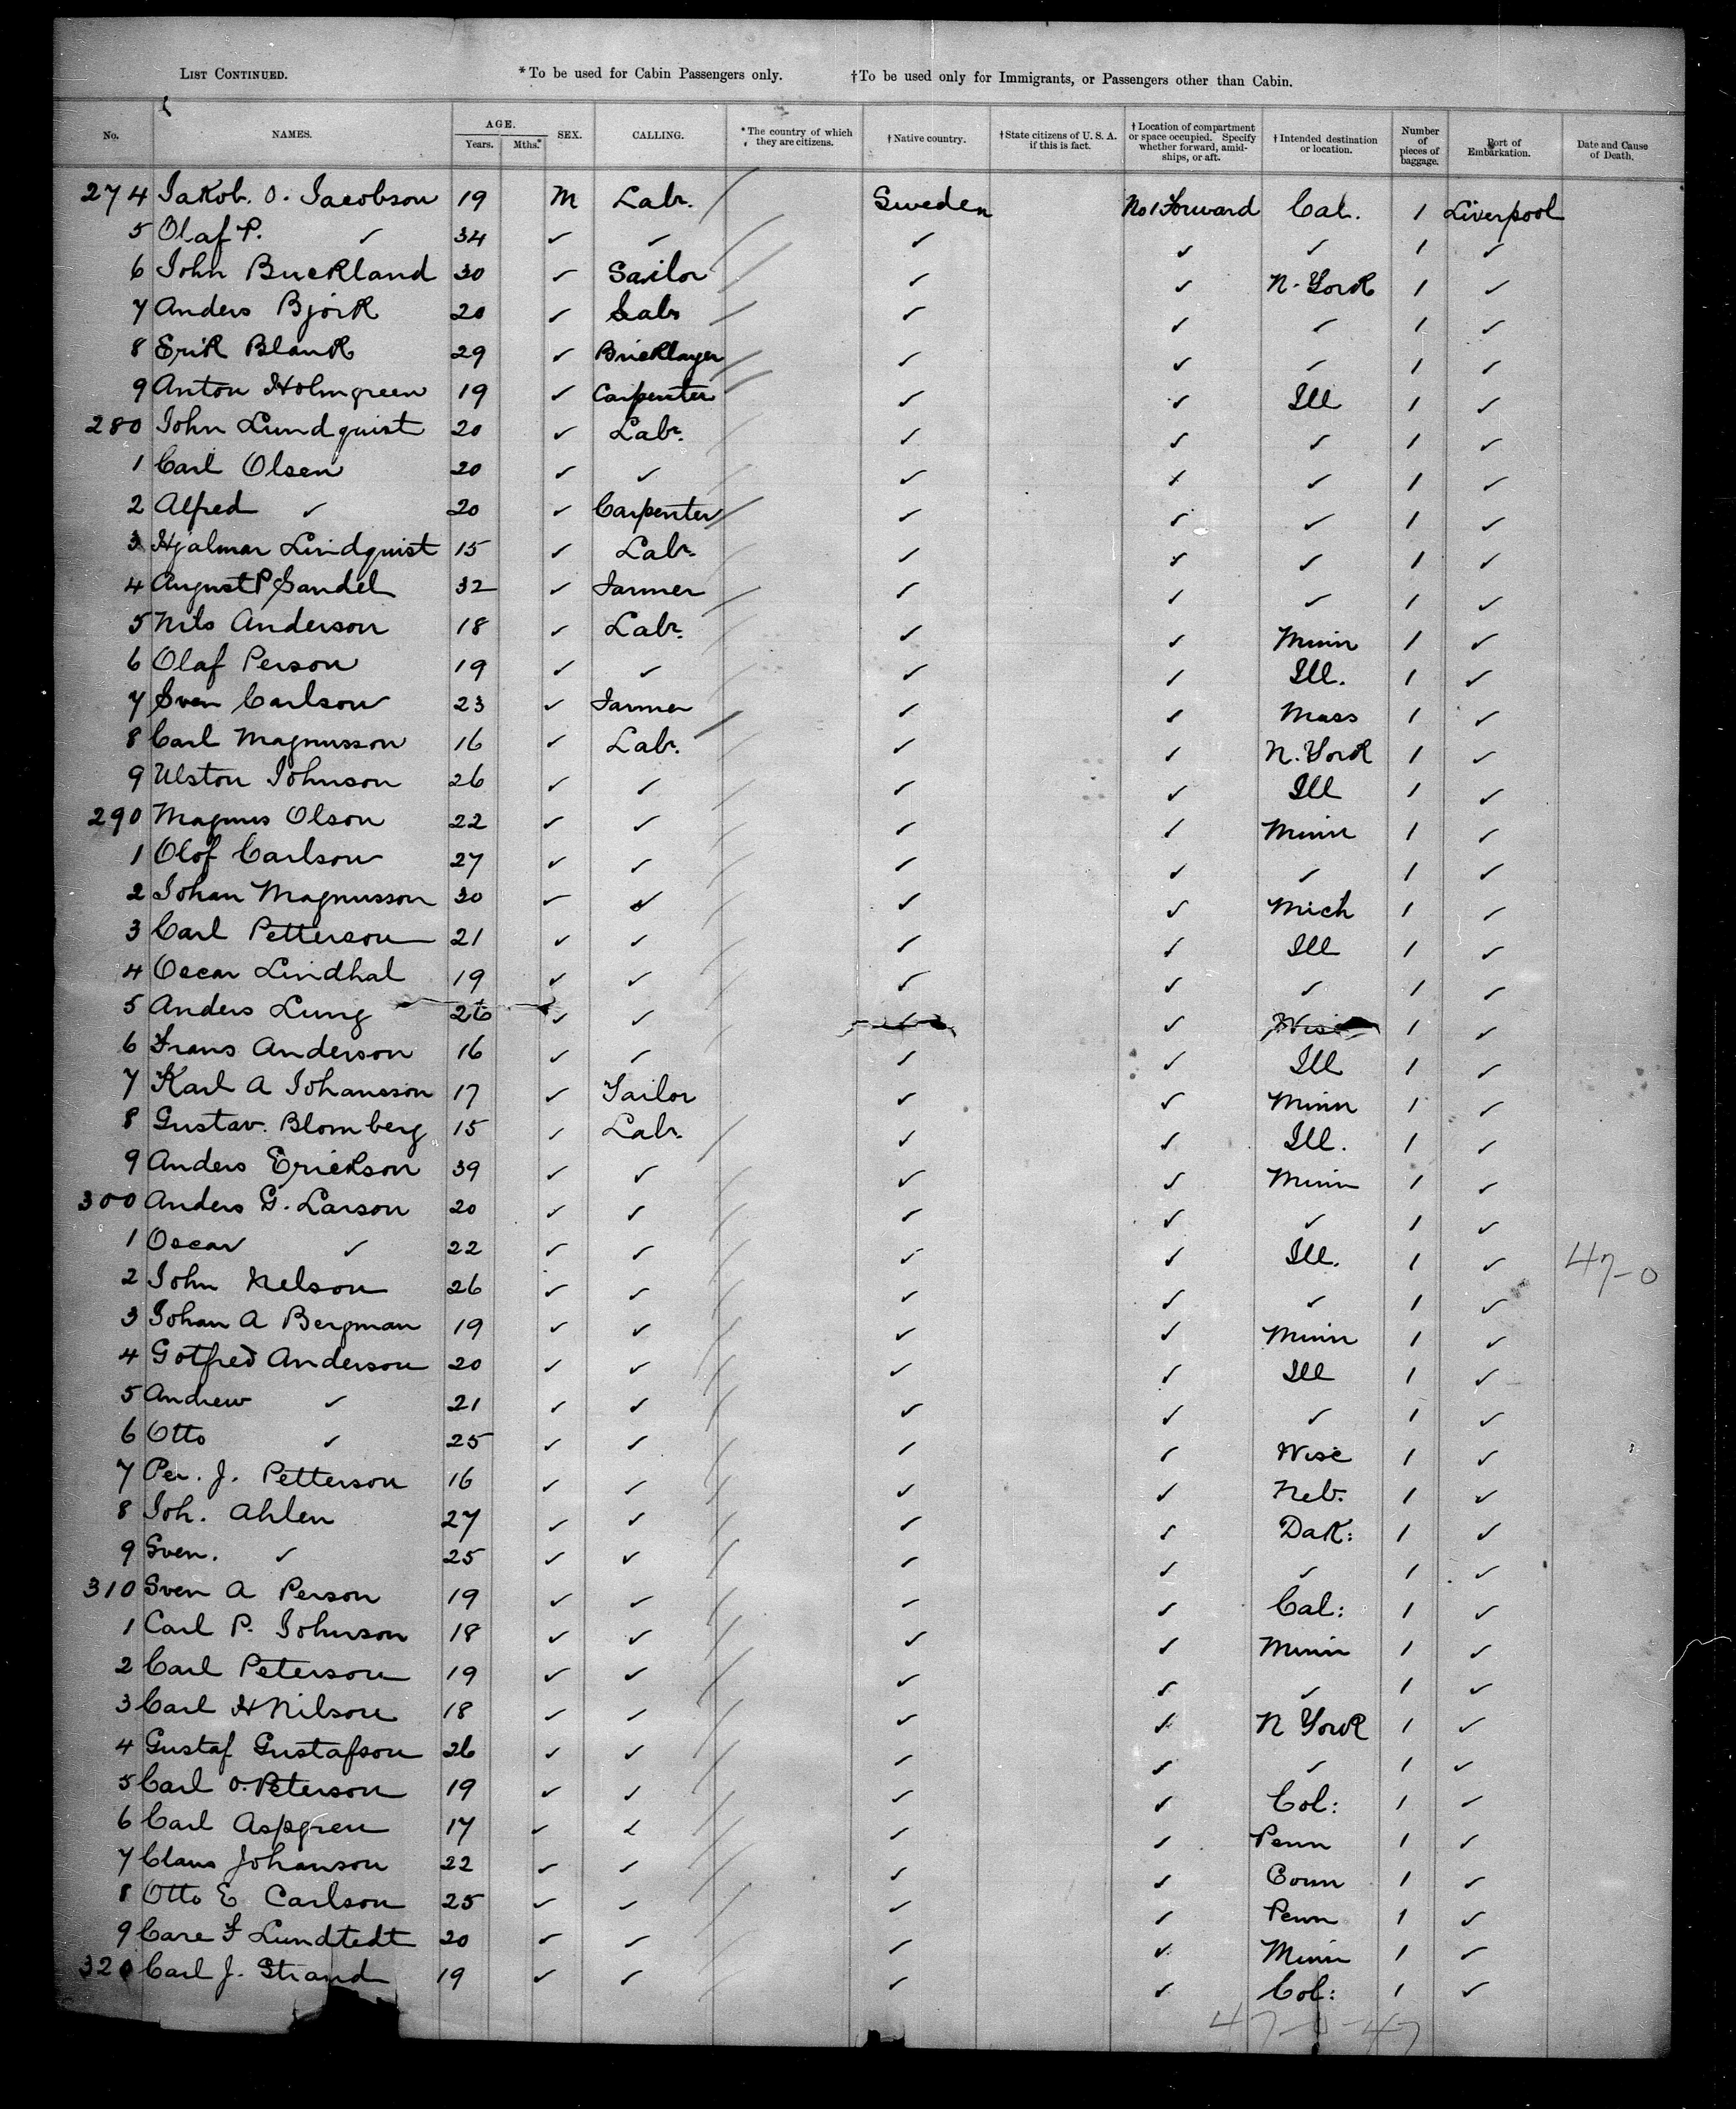 LIST CONTINUED. *To be used for Cabin Passengers only. †To be used only for Immigrants, or Passengers other than Cabin.
No. NAMES. AGE. Years. Mths. SEX. CALLING. *The country of which they are citizens. †Native country. †State citizens of U. S. A. if this is fact. †Location of compartment or space occupied. Specify whether forward, amidships, or aft. †Intended destination or location. Number of pieces of baggage. Port of Embarkation. Date and Cause of Death.
274 Jakob. O. Jacobson 19 M Labr. Sweden No 1 Forward Cal. 1 Liverpool
5 Olaf P. ✓ 34 ✓ ✓ ✓ ✓ ✓ 1 ✓
6 John Buckland 30 ✓ Sailor ✓ ✓ N-York 1 ✓
7 Anders Bjork 20 ✓ Labr ✓ ✓ ✓ 1 ✓
8 Erik Blank 29 ✓ Bricklayer ✓ ✓ ✓ 1 ✓
9 Anton Holmgreen 19 ✓ Carpenter ✓ ✓ Ill 1 ✓
280 John Lundquist 20 ✓ Labr. ✓ ✓ ✓ 1 ✓
1 Carl Olsen 20 ✓ ✓ ✓ ✓ ✓ 1 ✓
2 Alfred ✓ 20 ✓ Carpenter ✓ ✓ ✓ 1 ✓
3 Hjalmar Lindquist 15 ✓ Labr. ✓ ✓ ✓ 1 ✓
4 August P Sandel 32 ✓ Farmer ✓ ✓ ✓ 1 ✓
5 Nils Anderson 18 ✓ Labr. ✓ ✓ Minn 1 ✓
6 Olaf Person 19 ✓ ✓ ✓ ✓ Ill. 1 ✓
7 Sven Carlson 23 ✓ Farmer ✓ ✓ Mass 1 ✓
8 Carl Magnusson 16 ✓ Labr. ✓ ✓ N. York 1 ✓
9 Ulston Johnson 26 ✓ ✓ ✓ ✓ Ill 1 ✓
290 Magnus Olson 22 ✓ ✓ ✓ ✓ Minn 1 ✓
1 Olof Carlson 27 ✓ ✓ ✓ ✓ ✓ 1 ✓
2 Johan Magnusson 30 ✓ ✓ ✓ ✓ Mich 1 ✓
3 Carl Petterson 21 ✓ ✓ ✓ ✓ Ill 1 ✓
4 Oscar Lindhal 19 ✓ ✓ ✓ ✓ ✓ 1 ✓
5 Anders Lung 26 ✓ ✓ ✓ ✓ Wisc 1 ✓
6 Frans Anderson 16 ✓ ✓ ✓ ✓ Ill 1 ✓
7 Karl A Johansson 17 ✓ Tailor ✓ ✓ Minn 1 ✓
8 Gustav. Blomberg 15 ✓ Labr. ✓ ✓ Ill. 1 ✓
9 Anders Erickson 39 ✓ ✓ ✓ ✓ Minn 1 ✓
300 Anders G. Larson 20 ✓ ✓ ✓ ✓ ✓ 1 ✓
1 Oscar ✓ 22 ✓ ✓ ✓ ✓ Ill. 1 ✓ 47-0
2 John Nelson 26 ✓ ✓ ✓ ✓ ✓ 1 ✓
3 Johan A Bergman 19 ✓ ✓ ✓ ✓ Minn 1 ✓
4 Gotfred Anderson 20 ✓ ✓ ✓ ✓ Ill 1 ✓
5 Andrew ✓ 21 ✓ ✓ ✓ ✓ ✓ 1 ✓
6 Otto ✓ 25 ✓ ✓ ✓ ✓ Wisc 1 ✓
7 Per. J. Petterson 16 ✓ ✓ ✓ ✓ Neb. 1 ✓
8 Joh. Ahlen 27 ✓ ✓ ✓ ✓ Dak: 1 ✓
9 Sven. ✓ 25 ✓ ✓ ✓ ✓ ✓ 1 ✓
310 Sven A Person 19 ✓ ✓ ✓ ✓ Cal: 1 ✓
1 Carl P. Johnson 18 ✓ ✓ ✓ ✓ Minn 1 ✓
2 Carl Peterson 19 ✓ ✓ ✓ ✓ ✓ 1 ✓
3 Carl H Nilson 18 ✓ ✓ ✓ ✓ N York 1 ✓
4 Gustaf Gustafson 26 ✓ ✓ ✓ ✓ ✓ 1 ✓
5 Carl O. Peterson 19 ✓ ✓ ✓ ✓ Col: 1 ✓
6 Carl Aspgren 17 ✓ ✓ ✓ ✓ Penn 1 ✓
7 Claus Johanson 22 ✓ ✓ ✓ ✓ Conn 1 ✓
8 Otto E Carlson 25 ✓ ✓ ✓ ✓ Penn 1 ✓
9 Care F Lundtedt 20 ✓ ✓ ✓ ✓ Minn 1 ✓
320 Carl J. Strand 19 ✓ ✓ ✓ ✓ Col: 1 ✓
47-0-47